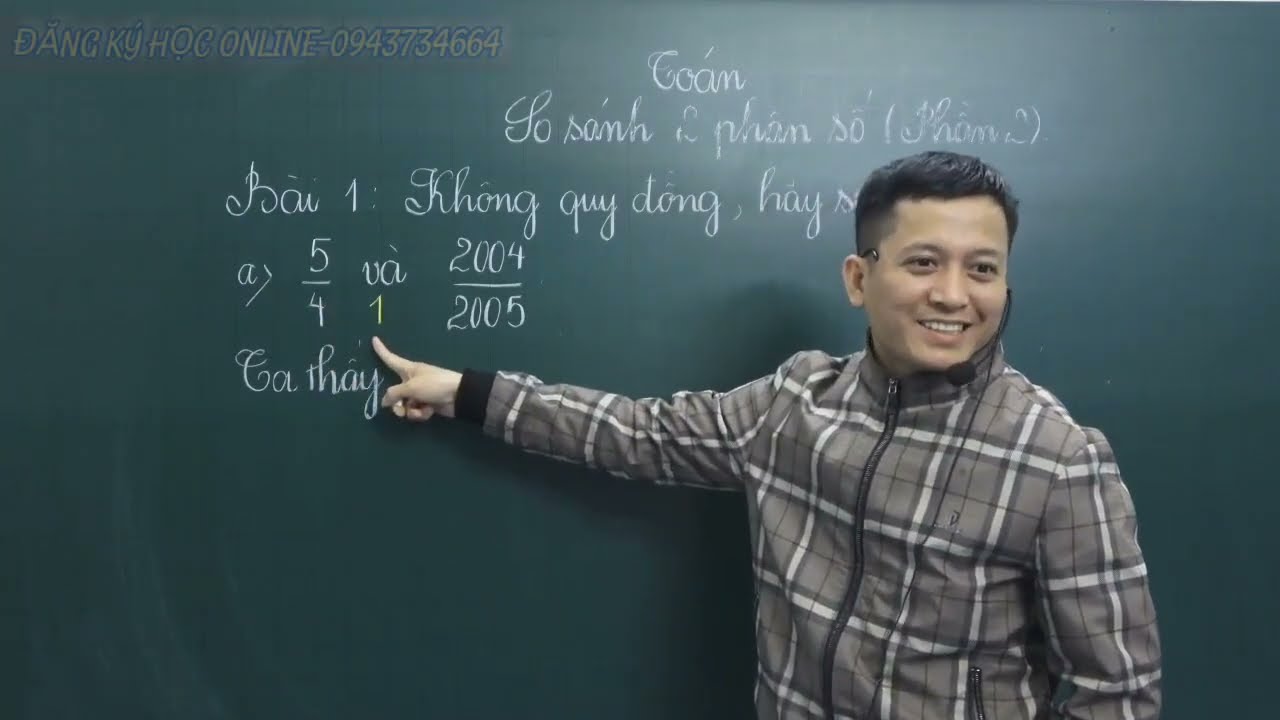 ĐĂNG KÝ HỌC ONLINE-0943734664
Toán
So sánh 2 phân số (Phần 2)
Bài 1: Không quy đồng, hãy
a) 5/4 và 2004/2005
1
Ta thấy